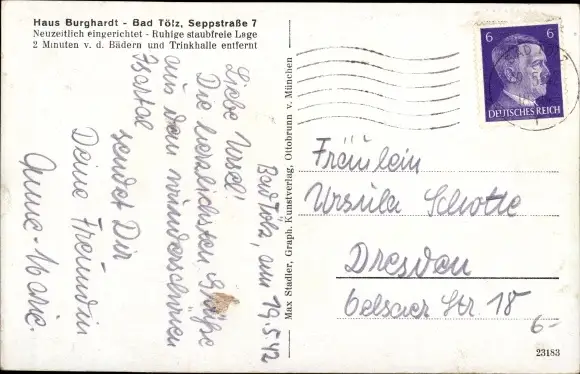 Haus Burghardt - Bad Tölz, Seppstraße 7
Neuzeitlich eingerichtet - Ruhige staubfreie Lage
2 Minuten v. d. Bädern und Trinkhalle entfernt
Bad Tölz, am 19.5.42
Liebe Ursel!
Die herzlichsten Grüße
aus dem wunderschönen
Isartal
sendet Dir
Deine Freundin
Anne-Marie.
Max Stadler, Graph. Kunstverlag, Ottobrunn v. München
6 6
DEUTSCHES REICH
Fräulein
Ursula Schotte
Dresden
Oelsaer Str 18
6-
23183